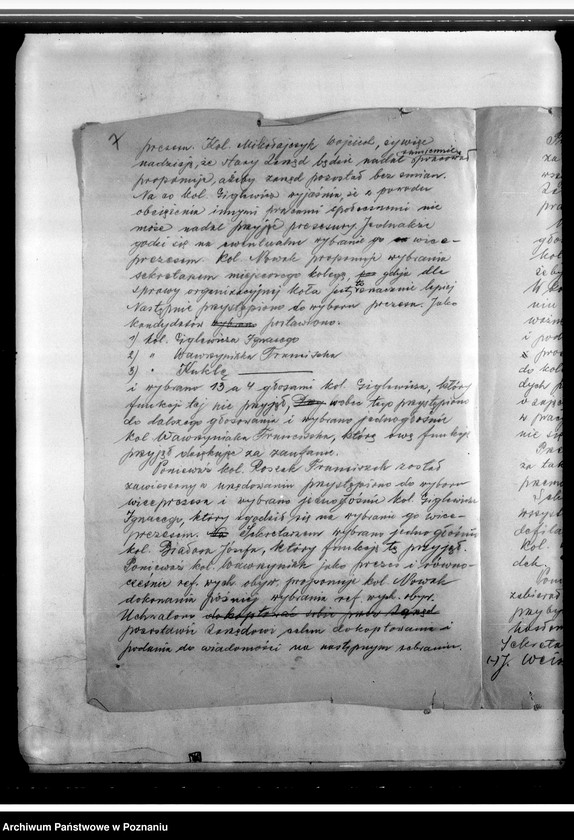 prezesem. Kol. Mikołajczyk Wojciech, żywiąc
nadzieję, że stary Zarząd będzie nadal sumiennie pracował
proponuje, ażeby zarząd pozostał bez zmian.
Na co kol. Giglewicz wyjaśnia, że z powodu
obciążenia innymi pracami społecznemi nie
może nadal przyjąć prezesury. Jednakże
godzi się na ewentualne wybranie go wice-
prezesem. Kol. Nowak proponuje wybrania
sekretarzem miejscowego kolegę, gdyż dla
sprawy organizacyjnej koła jest to znacznie lepiej
Następnie przystąpiono do wyboru prezesa. Jako
kandydatów wybrano postawiono:
1) kol. Giglewicza Ignacego
2) " Wawrzyniaka Franciszka
3) " Kuklę
i wybrano 13 a 4 głosami kol. Giglewicza, który
funkcji tej nie przyjął, wobec tego przystąpiono
do dalszego głosowania i wybrano jednogłośnie
kol. Wawrzyniaka Franciszka, który ową funkcję
przyjął dziękując za zaufanie.
Ponieważ kol. Rosiak Franciszek został
zawieszony w urzędowaniu przystąpiono do wyboru
wiceprezesa i wybrano jednogłośnie kol. Giglewicza
Ignacego, który zgodził się na wybranie go wice-
prezesem. Sekretarzem wybrano jednogłośnie
kol. Józefa, który funkcję tę przyjął.
Ponieważ kol. Wawrzyniak jako prezes i równo-
cześnie ref. wych. obyw. proponuje kol. Nowak
dokonania później wybrania ref. wych. obyw.
Uchwalono dokoptować sobie przez Zarząd
pozostawić Zarządowi celem dokoptowania i
podania do wiadomości na następnym zebraniu.
Sekreta
(-) J. Wein
Archiwum Państwowe w Poznaniu